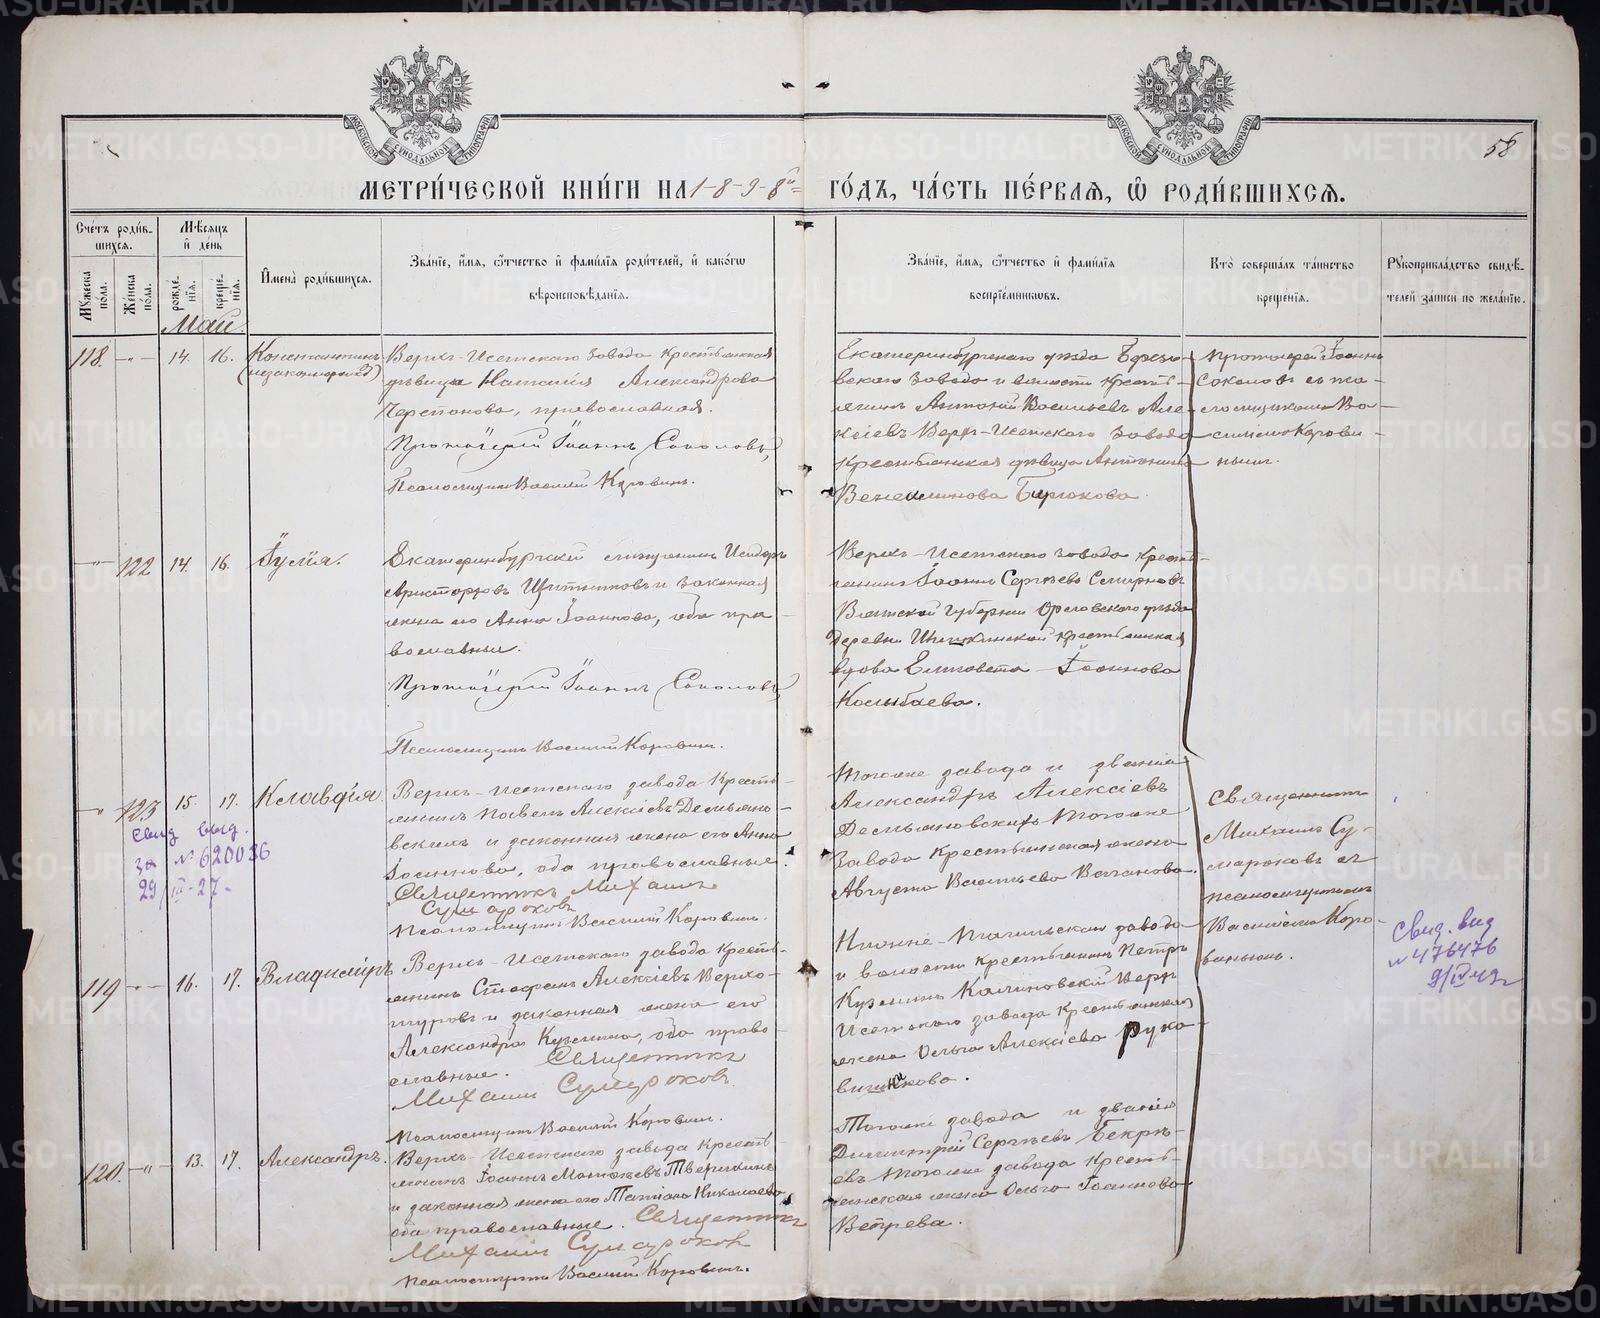 МОСКОВСКОЙ СѴНОДАЛЬНОЙ ТИПОГРАФІИ
МОСКОВСКОЙ СѴНОДАЛЬНОЙ ТИПОГРАФІИ
58
МЕТРИ́ЧЕСКОЙ КНИ́ГИ НА 1-8-9-8й ГО́ДЪ, ЧА́СТЬ ПЕ́РВАЯ, Ѡ РОДИ́ВШИХСЯ.
Сче́тъ роди́вшихся.
Мѣ́сяцъ и де́нь
Имена̀ роди́вшихся.
Зва́ніе, и́мя, ѻ҆́тчество и фами́лія роди́телей, и како́гѡ
вѣроисповѣ́данія.
Зва́ніе, и́мя, ѻ҆́тчество и фами́лія
воспріе́мниковъ.
Кто̀ соверша́лъ та́инство
креще́нія.
Рукоприкла́дство свидѣ́телей за́писи по жела́нію.
Му́жеска по́ла.
Же́нска по́ла.
рожде́нія.
креще́нія.
Май.
118. -"- 14. 16. Константинъ
(незаконнорожд)
Верхъ-Исетскаго завода крестьянская
дѣвица Наталія Александрова
Черепанова, православная.
Протоіерей Іоаннъ Соколовъ,
Псаломщикъ Василій Коровинъ.
Екатеринбургскаго уѣзда Березовскаго завода и волости крестьянинъ Антоній Васильевъ Алексіевъ Верх-Исетскаго завода
крестьянская дѣвица Антонина
Веніаминова Бирюкова.
Протоіерей Іоаннъ
Соколовъ съ псаломщикомъ Василіемъ Коровинымъ.
-"- 122 14. 16. Іулія.
Екатеринбургскій мѣщанинъ Исидоръ
Аристарховъ Щитниковъ и законная
жена его Анна Іоаннова, оба православные.
Протоіерей Іоаннъ Соколовъ,
Псаломщикъ Василій Коровинъ.
Верхъ-Исетскаго завода крестьянинъ Іоаннъ Сергѣевъ Смирновъ
Вятской губерніи Орловскаго уѣзда
деревни крестьянская
вдова Елисавета Іоаннова
-"- 123 15. 17. Клавдія.
Свид. выд.
за № 620036
29/IV-27-
Верхъ-Исетскаго завода крестьянинъ Павелъ Алексіевъ Демьяновскихъ и законная жена его Анна
Іоаннова, оба православные.
Священникъ Михаилъ
Сумароковъ
Псаломщикъ Василій Коровинъ.
Тогоже завода и званія
Александръ Алексіевъ
Демьяновскихъ тогоже
завода крестьянская жена
Августа Васильева Ваганова.
Священникъ
Михаилъ Сумароковъ съ
псаломщикомъ
Василіемъ Коровинымъ.
119 -"- 16. 17. Владиміръ
Верхъ-Исетскаго завода крестьянинъ Стефанъ Алексіевъ Верхотуровъ и законная жена его
Александра Кузьмина, оба православные. Священникъ
Михаилъ Сумароковъ.
Псаломщикъ Василій Коровинъ.
Нижне-Тагильскаго завода
и волости крестьянинъ Петръ
Кузьминъ Калиновскій Верх
Исетскаго завода крестьянская
жена Ольга Алексіева Рукавишникова.
Свид. выд
№ 476476
9/IV 49г
120. -"- 13. 17. Александръ.
Верхъ-Исетскаго завода крестьянинъ Іоаннъ Матѳеевъ Тверикинъ
и законная жена его Татіана Николаева
оба православные. Священникъ
Михаилъ Сумароковъ
Псаломщикъ Василій Коровинъ.
Тогоже завода и званія
Димитрій Сергѣевъ
тогоже завода крестьянская жена Ольга Іоаннова
Ветрева.
METRIKI.GASO-URAL.RU